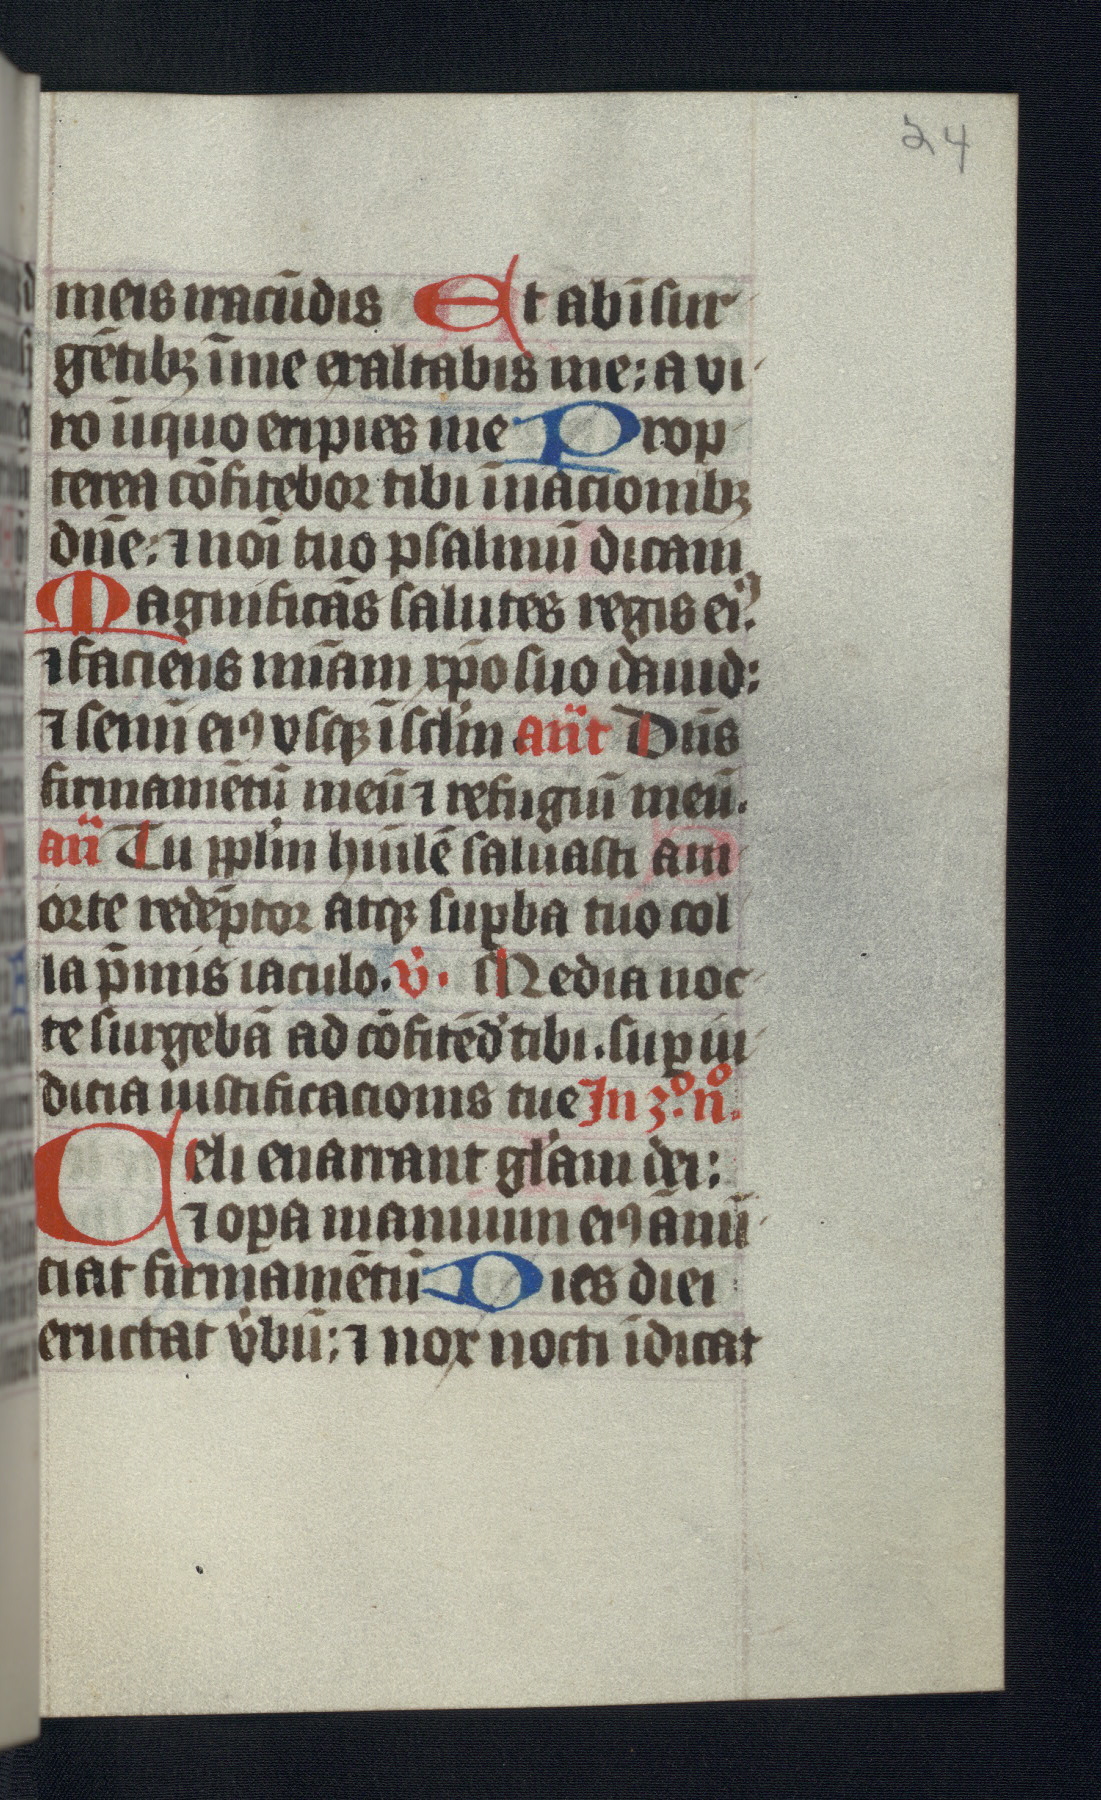 24
meis iracūdis Et ab ī sur
gētibꝫ ī me exaltabis me: a vi
ro ī iquo eripies me Prop
terea cōfitebor tibi ī nacionibꝫ
dn̄e: ⁊ noī tuo psalmū dicam
Magnificās salutes regis eiꝰ:
⁊ faciens mīam xp̄o suo dauid:
⁊ semī eiꝰ vsqꝫ ī sclm̄ an̄t Dn̄s
firmamētū meū ⁊ refugiū meū.
an̄ Tu ppl'm hūilē saluasti am
orte redēptor atqꝫ suꝑba tuo col
la p̄mis iaculo. v̄. Media noc
te surgebā ad cōfitēd' tibi. suꝑ iu
dicia iustificacionis tue In 3º. nº.
Celi enarrant gl'am dei:
⁊ oꝑa manuum eiꝰ ānū
tiat firmamētū Dies diei
eructat v̄bū: ⁊ nox nocti īdicat